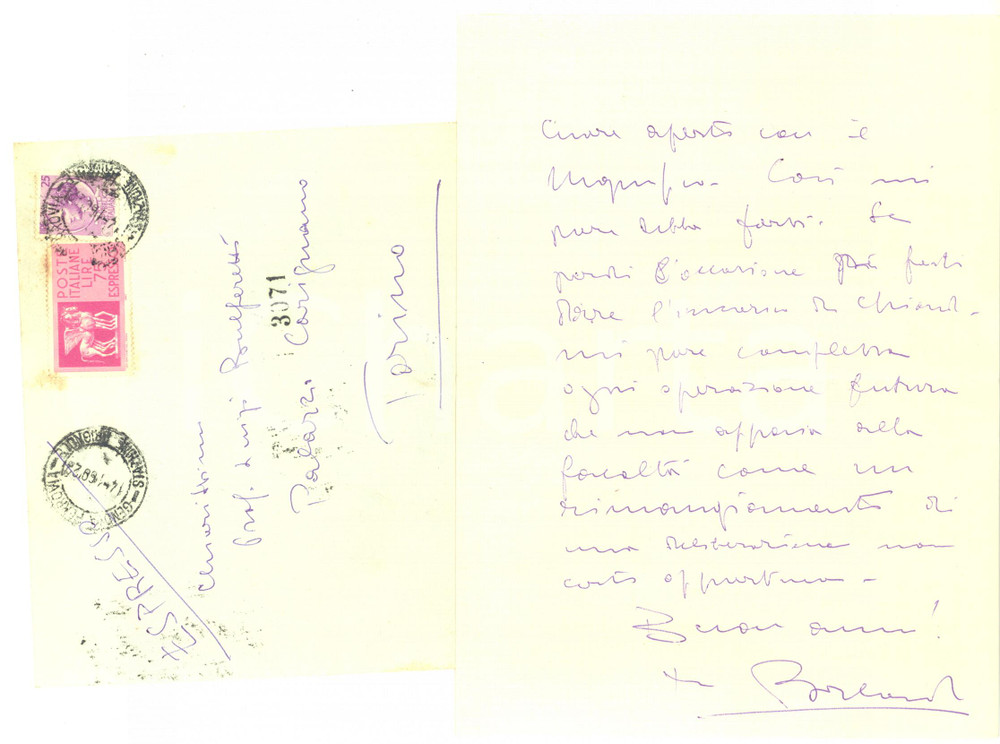 25
POSTE
ITALIANE
LIRE
75
ESPRESSO
ESPRESSO
Chiarissimo
Prof. Luigi Bulferetti
3071
Palazzo Carignano
Torino
Cuore aperto con il
Magnifico. Così mi
pare debba farsi. Se
perdi l'occasione
l'incarico di
mi pare complessa
ogni operazione futura
che non appaia alla
facoltà come un
rimangiamento di
una deliberazione non
certo opportuna -
Buon anno!